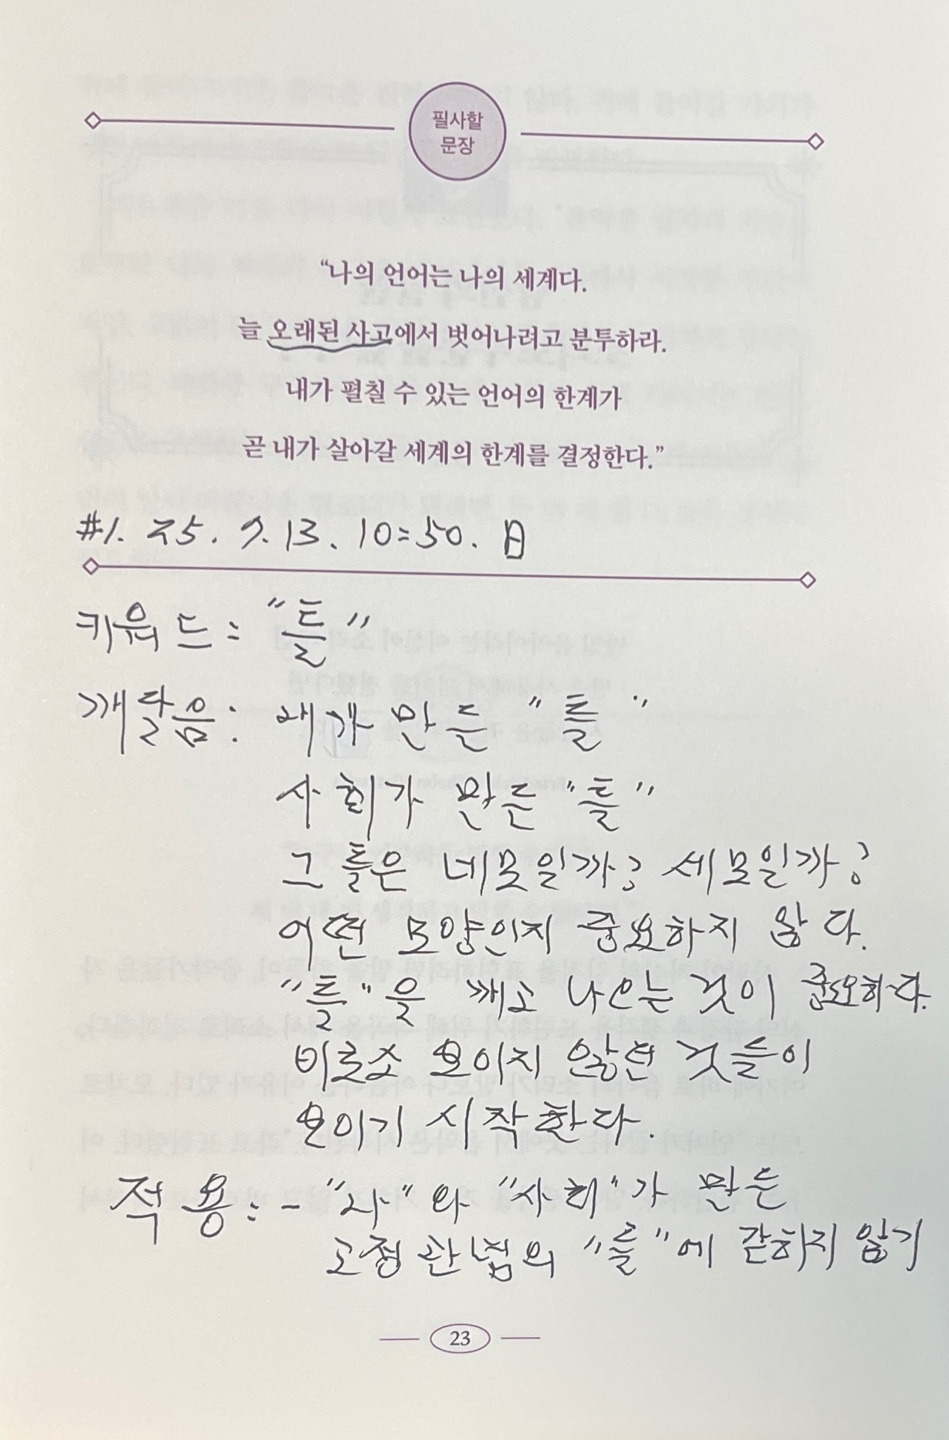 필사할
문장
“나의 언어는 나의 세계다.
늘 오래된 사고에서 벗어나려고 분투하라.
내가 펼칠 수 있는 언어의 한계가
곧 내가 살아갈 세계의 한계를 결정한다.”
#1. 25. 9. 13. 10:50. 日
키워드: “틀”
깨달음: 내가 만든 “틀”
사회가 만든 “틀”
그 틀은 네모일까? 세모일까?
어떤 모양인지 중요하지 않다.
“틀”을 깨고 나오는 것이 중요하다.
비로소 보이지 않던 것들이
보이기 시작한다.
적용: - “나”와 “사회”가 만든
고정관념의 “틀”에 갇히지 않기
23